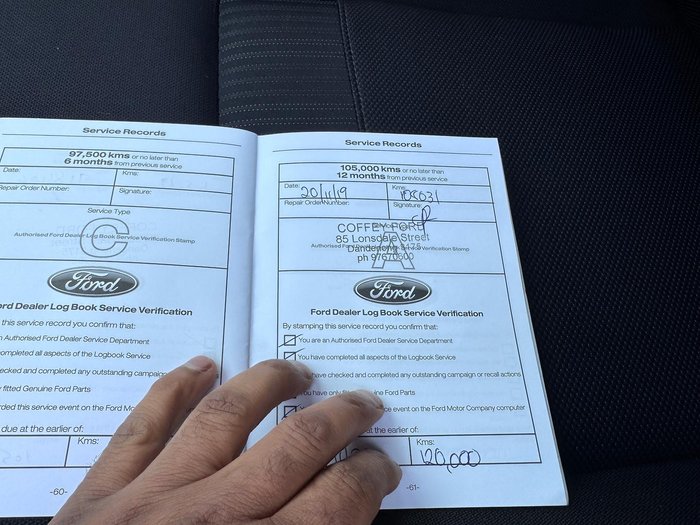 Service Records
97,500 kms or no later than
6 months from previous service
Date:
Kms:
Repair Order Number:
Signature:
Service Type
C
Authorised Ford Dealer Log Book Service Verification Stamp
Ford
rd Dealer Log Book Service Verification
this service record you confirm that:
n Authorised Ford Dealer Service Department
ompleted all aspects of the Logbook Service
ecked and completed any outstanding campaign
fitted Genuine Ford Parts
ded this service event on the Ford Mo
due at the earlier of:
Kms:
-60-
Service Records
105,000 kms or no later than
12 months from previous service
Date: 20/11/19
Kms:
Repair Order Number:
Signature:
COFFEY FORD
85 Lonsdale Street
A
Dandenong 3175
ph 97670500
Ford
Ford Dealer Log Book Service Verification
By stamping this service record you confirm that:
You are an Authorised Ford Dealer Service Department
You have completed all aspects of the Logbook Service
have checked and completed any outstanding campaign or recall actions
have only Ford Parts
event on the Ford Motor Company computer
at the earlier of:
Kms:
120,000
-61-